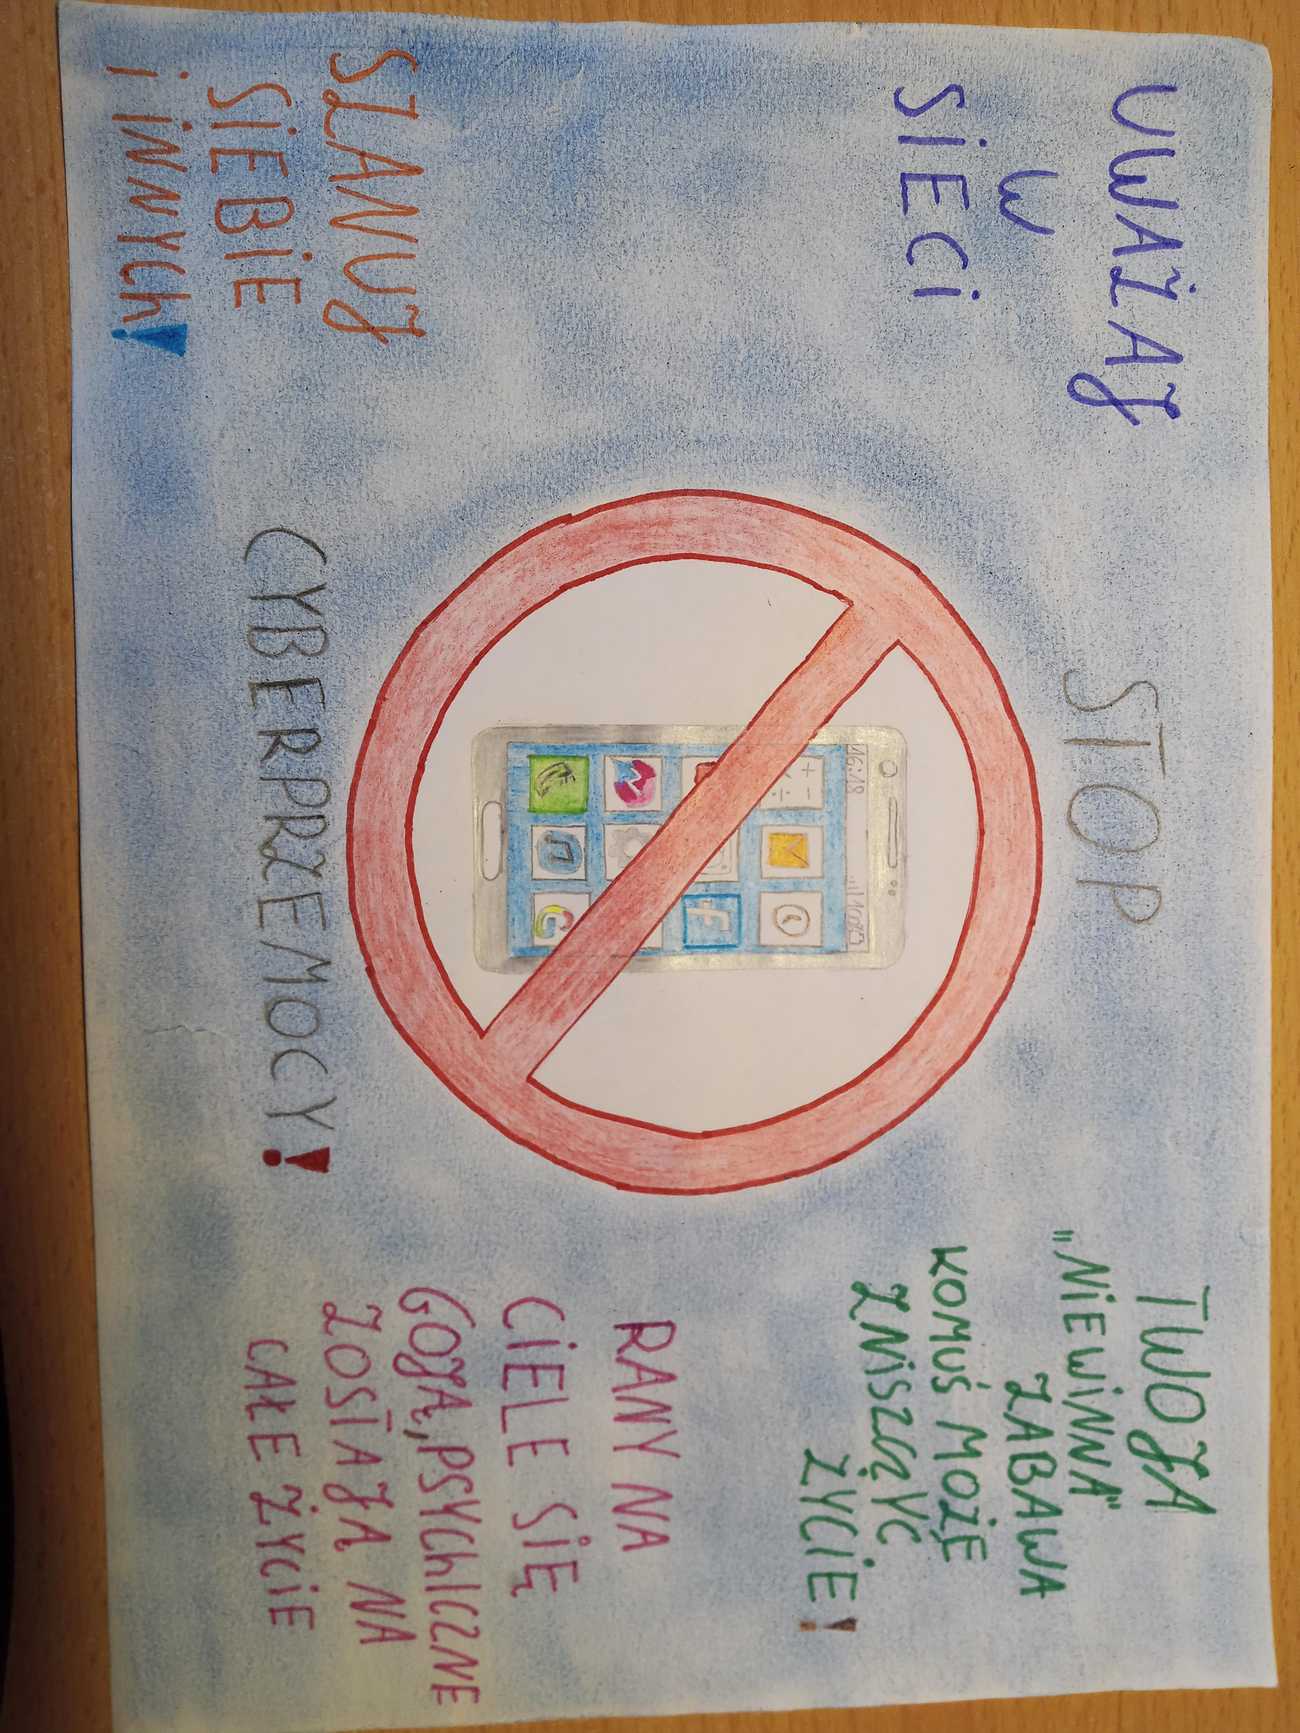 UWAŻAJ
W
SIECI
STOP
TWOJA
„NIEWINNA"
ZABAWA
KOMUŚ MOŻE
ZNISZCZYĆ
ŻYCIE!
16:18
f
G
RANY NA
CIELE SIĘ
GOJĄ, PSYChICZNE
ZOSTAJĄ NA
CAŁE ŻYCIE
SZANUJ
SIEBIE
I INNYCh!
CYBERPRZEMOCY!